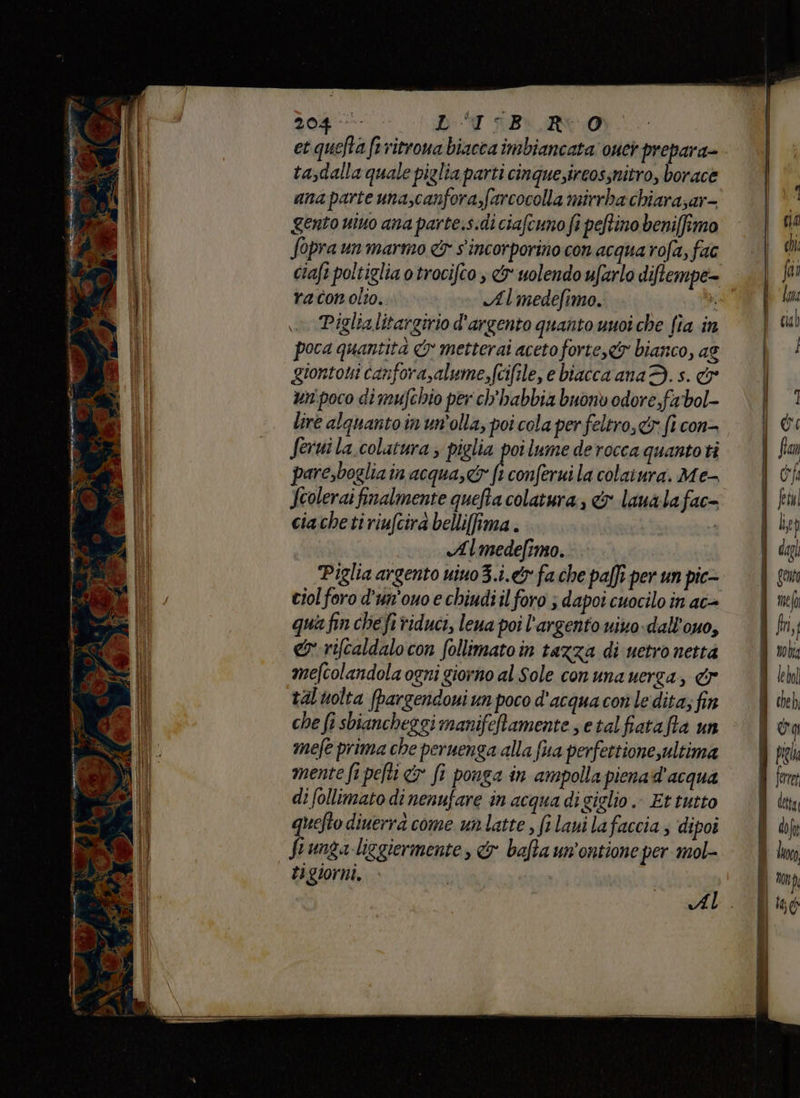 204 LIBRO
et questa si ritroua biacca imbiancata ouer prepara-
ta, dalla quale piglia parti cinque, ireos, nitro, borace
ana parte una, canfora, sarcocolla mirrha chiara, ar-
gento uiuo ana parte.s. di ciascuno si pestino benissimo
sopra un marmo & s'incorporino con acqua rosa, fac
ciasi poltiglia o trocisco, & uolendo usarlo distempe-
ra con olio. Al medesimo.
Piglia litargirio d'argento quanto uuoi che sia in
poca quantità & metterai aceto forte, & bianco, ag
giontoui canfora, alume, scisile, e biacca ana Э. s. &
un poco di muschio per ch'habbia buono odore, fa bol-
lire alquanto in un'olla, poi cola per feltro, & si con-
serui la colatura, piglia poi lume de rocca quanto ti
pare, boglia in acqua, & si conserui la colatura. Me-
scolerai finalmente questa colatura, & laua la fac-
cia che ti riuscirà bellissima.
Al medesimo.
Piglia argento uiuo ʒ.i. & fa che passi per un pic-
ciol foro d'un'ouo e chiudi il foro; dapoi cuocilo in ac-
qua fin che si riduci, leua poi l'argento uiuo dall'ouo,
& riscaldalo con sollimato in tazza di uetro netta
mescolandola ogni giorno al Sole con una uerga, &
tal uolta spargendoui un poco d'acqua con le dita, fin
che si sbiancheggi manifestamente, e tal fiata sta un
mese prima che peruenga alla sua perfettione, ultima
mente si pesti & si ponga in ampolla piena d'acqua
di sollimato di nenufare in acqua di giglio. Et tutto
questo diuerrà come un latte, si laui la faccia, dipoi
si unga liggiermente, & basta un'ontione per mol-
ti giorni.
Al